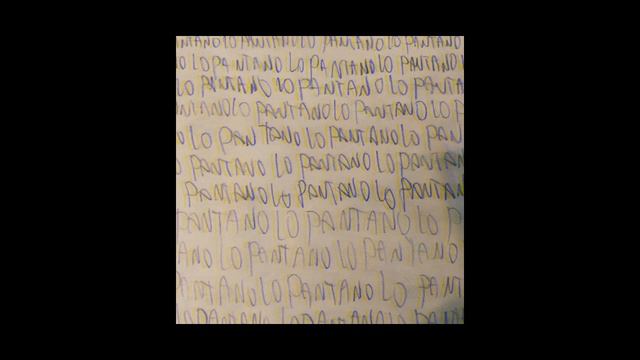 NTANO LO PANTANO LO PANTANO LO PANTANO
O LO PANTANO LO PANTANO LO PANTANO
LO PANTANO LO PANTANO LO PANTA
NTANO LO PANTANO LO PANTANO LO P
O LO PANTANO LO PANTANO LO PAN
PANTANO LO PANTANO LO PANTAN
PANTANO LO PANTANO LO PANTAN
PANTANO LO PANTANO LO P
ANO LO PANTANO LO PANTANO
PANTANO LO PANTANO LO PANT
LO PANTANO LO PANTANO LO PANTA